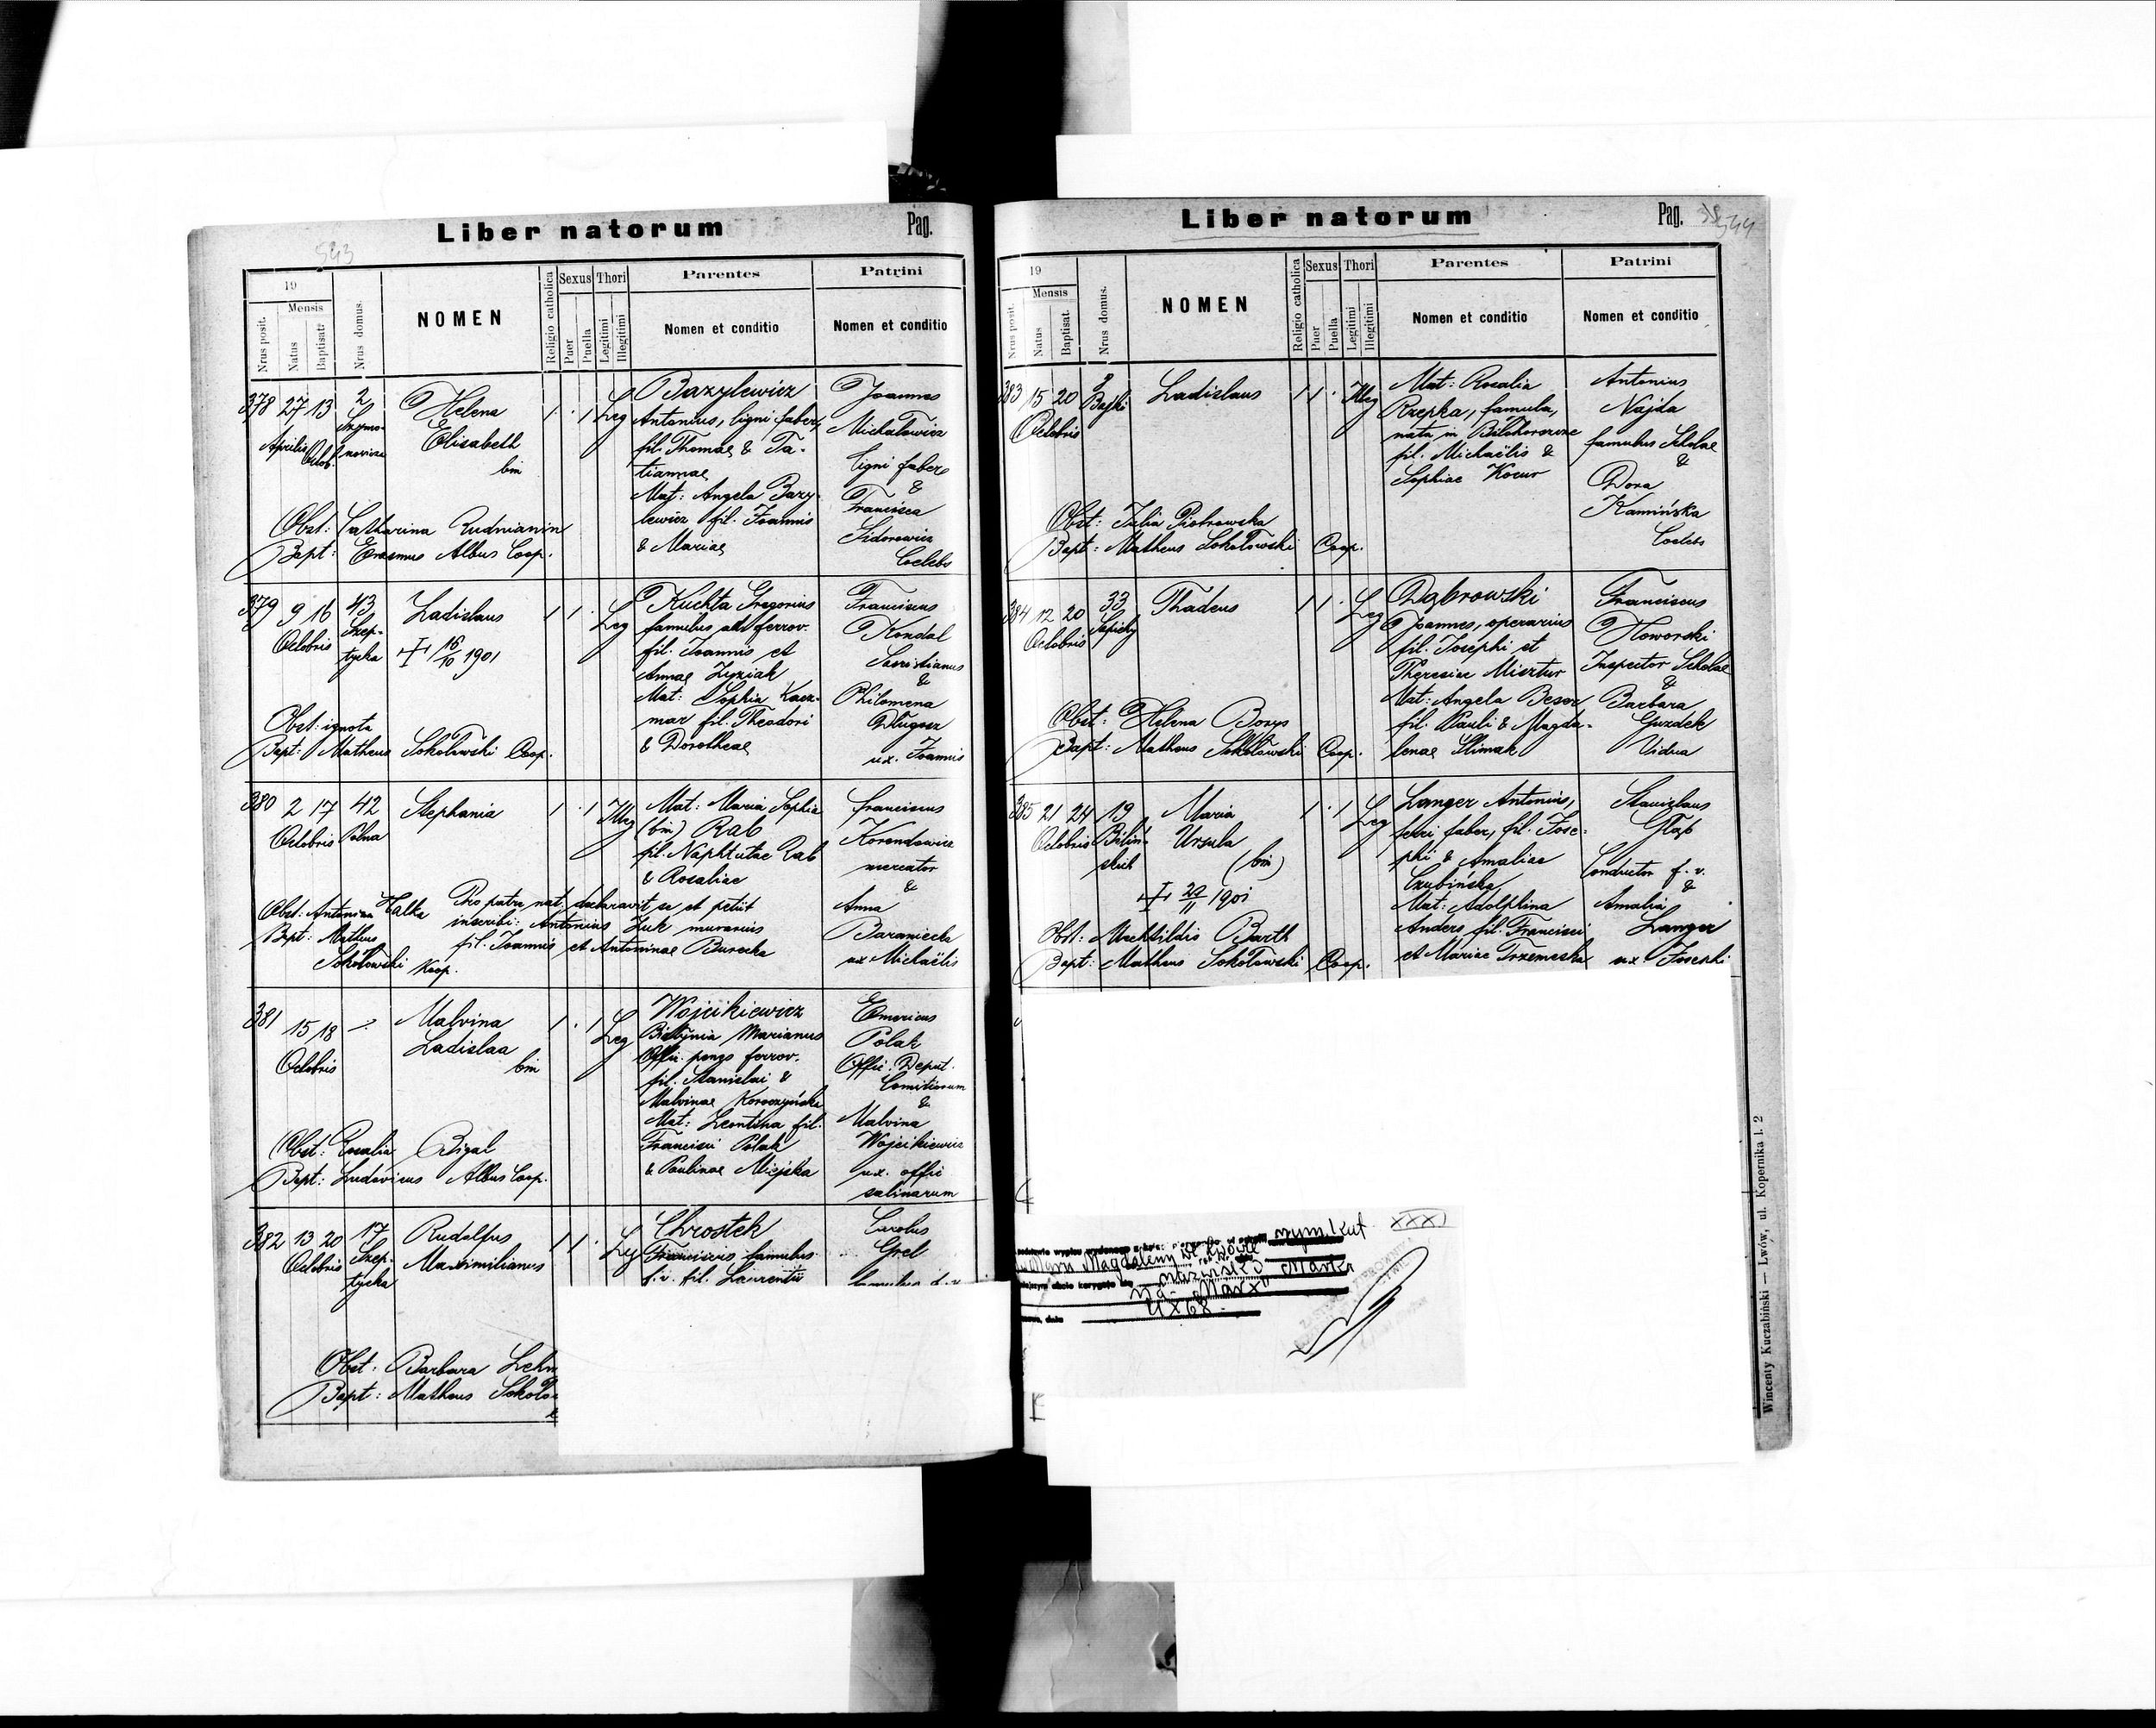 Liber natorum
Pag.
543
19
Nrus posit.
Mensis
Natus
Baptisat?
Nrus domus.
NOMEN
Religio catholica
Sexus
Puer
Puella
Thori
Legitimi
Illegitimi
Parentes
Nomen et conditio
Patrini
Nomen et conditio
378 27 13 2
Aprilis Octob.
Helena
Elisabeth
bin
1 . 1 Leg
Bazylewicz
Antonius, ligni faber,
fil. Thomae & Ta-
tiannae
Mat: Angela Bazy-
lewicz fil. Joannis
& Mariae
Joannes
Michałowicz
ligni faber
&
Francisca
Sidorowicz
Coelebs
Obst: Catharina Rudnianin
Bapt: Erasmus Albus Coop.
379 9 16 43
Octobris Szep-
tycka
Ladislaus
16/10 1901
1 1 . Leg
Kuchta Gregorius
famulus ad ferrov.
fil. Joannis et
Annae Zyziak
Mat: Sophia Kacz-
mar fil. Theodori
& Dorotheae
Franciscus
Kondal
Sacristianus
&
Philomena
Długosz
ux. Joannis
Obst: ignota
Bapt: Matheus Sokołowski Coop.
380 2 17 42
Octobris Polna
Stephania
1 . 1 Illeg
Mat: Maria Sophia
(bin) Rab
fil. Naphtutae Rab
& Rosaliae
Franciscus
Korondowicz
mercator
&
Anna
Baraniecka
ux Michaëlis
Obst: Antonina Halka
Pro patre nat. declaravit se et petiit
inscribi: Antonius Żuk murarius
fil. Joannis et Antoninae Burecka
Bapt: Matheus
Sokołowski Koop.
381 15 18
Octobris
Malvina
Ladislaa
bin
1 . 1 Leg
Wojcikiewicz
Marianus
ferrov.
fil. Stanislai &
Malvinae Koroczyńska
Mat: Leontina fil.
Francisci Polak
& Paulinae Miejska
Emericus
Polak
Offic. Deput.
Comitiorum
&
Malvina
Wojcikiewicz
ux. offic
salinarum
Obst: Rosalia Bigal
Bapt: Ludovicus Albus Coop.
382 13 20 17
Octobris Szep-
tycka
Rudolfus
Maximilianus
1 1 . Leg
Chrostek
Franciscus famulus
f. v. fil. Laurentii
Carolus
Grel
Obst: Barbara
Bapt: Matheus
Liber natorum
Pag. 544
19
Nrus posit.
Mensis
Natus
Baptisat.
Nrus domus.
NOMEN
Religio catholica
Sexus
Puer
Puella
Thori
Legitimi
Illegitimi
Parentes
Nomen et conditio
Patrini
Nomen et conditio
383 15 20 9
Octobris Bajki
Ladislaus
1 1 . Illeg
Mat: Rosalia
Rzepka, famula,
nata in Biłohorszcze
fil. Michaëlis &
Sophiae Kocur
Antonius
Najda
famulus Scholae
&
Dora
Kamińska
Coelebs
Obst: Julia Piotrowska
Bapt: Matheus Sokołowski Coop.
384 12 20 33
Octobris Sapiehy
Thadeus
1 1 . Leg
Dąbrowski
Joannes, operarius
fil. Josephi et
Theresiae Misztur
Mat: Angela Besoz
fil. Pauli & Magda-
lenae Slimak
Franciscus
Noworski
Inspector Scholae
&
Barbara
Guzdek
Vidua
Obst: Helena Borys
Bapt: Matheus Sokołowski Coop.
385 21 24 19
Octobris Biliń-
skich
Maria
Ursula
(bin)
29/11 1901
1 . 1 Leg
Langer Antonius,
ferri faber, fil. Jose-
phi & Amaliae
Czubińska
Mat: Adolphina
Anders fil. Francisci
et Mariae Trzemeska
Stanislaus
Conductor f. v.
&
Amalia
Langer
ux Josephi
Obst: Mechtildis Barth
Bapt: Matheus Sokołowski Coop.
rzym. kat. XXXI
Magdaleny we Lwowie
nazwisko "Marka
na "Marx"
Wincenty Kuczabiński — Lwów, ul. Kopernika l. 2